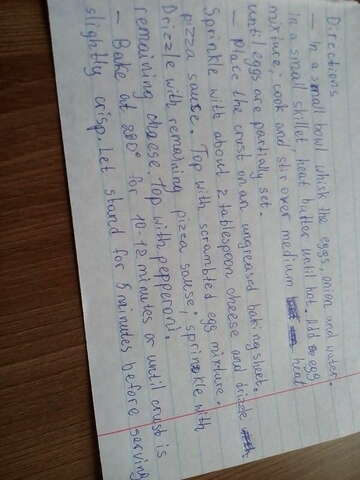 Directions
– In a small bowl whisk the eggs, onion and water.
In a small skillet heat butter until hot. Add egg
mixture, cook and stir over medium heat
until eggs are partially set.
– Place the crust on an ungreased baking sheet.
Sprinkle with about 2 tablespoon cheese and drizzle
pizza sause. Top with scrambled egg mixture.
Drizzle with remaining pizza sause; sprinkle with
remaining cheese. Top with pepperoni.
– Bake at for 10-12 minutes or until crust is
slightly crisp. Let stand for 5 minutes before serving